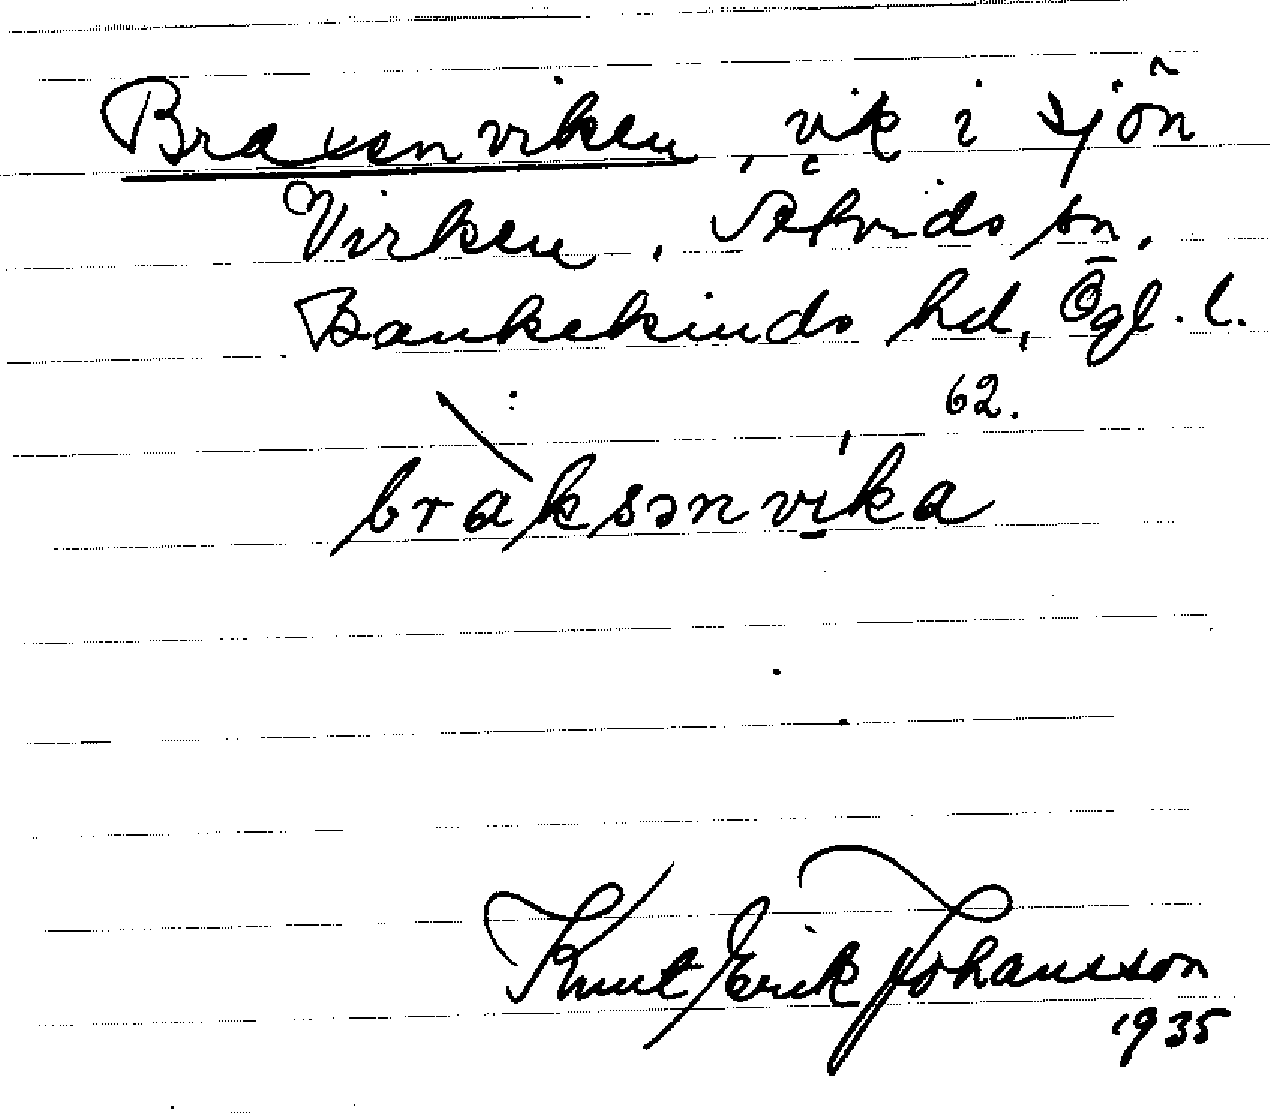 Braxenviken, vik i sjön
Virken, Åtvids sn,
Bankekinds hd, Ögl. l.
62.
bràksənvi̱ka
Knut Erik Johansson
1935